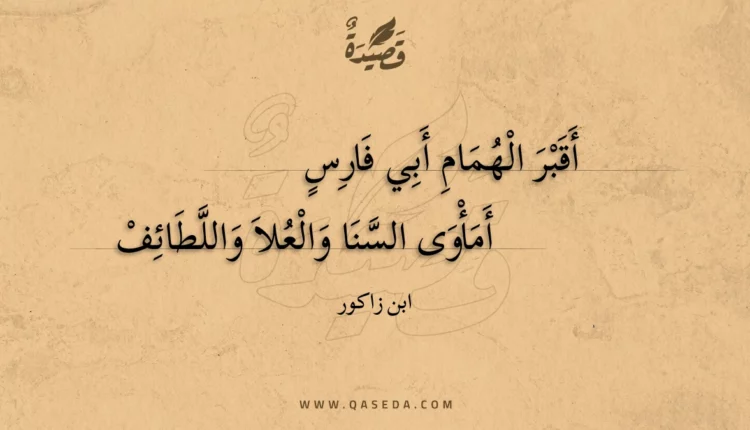 قَصِيْدَةٌ
أَقَبْرَ الْهُمَامِ أَبِي فَارِسٍ
أَمَأْوَى السَّنَا وَالْعُلاَ وَاللَّطَائِفْ
ابن زاكور
WWW.QASEDA.COM